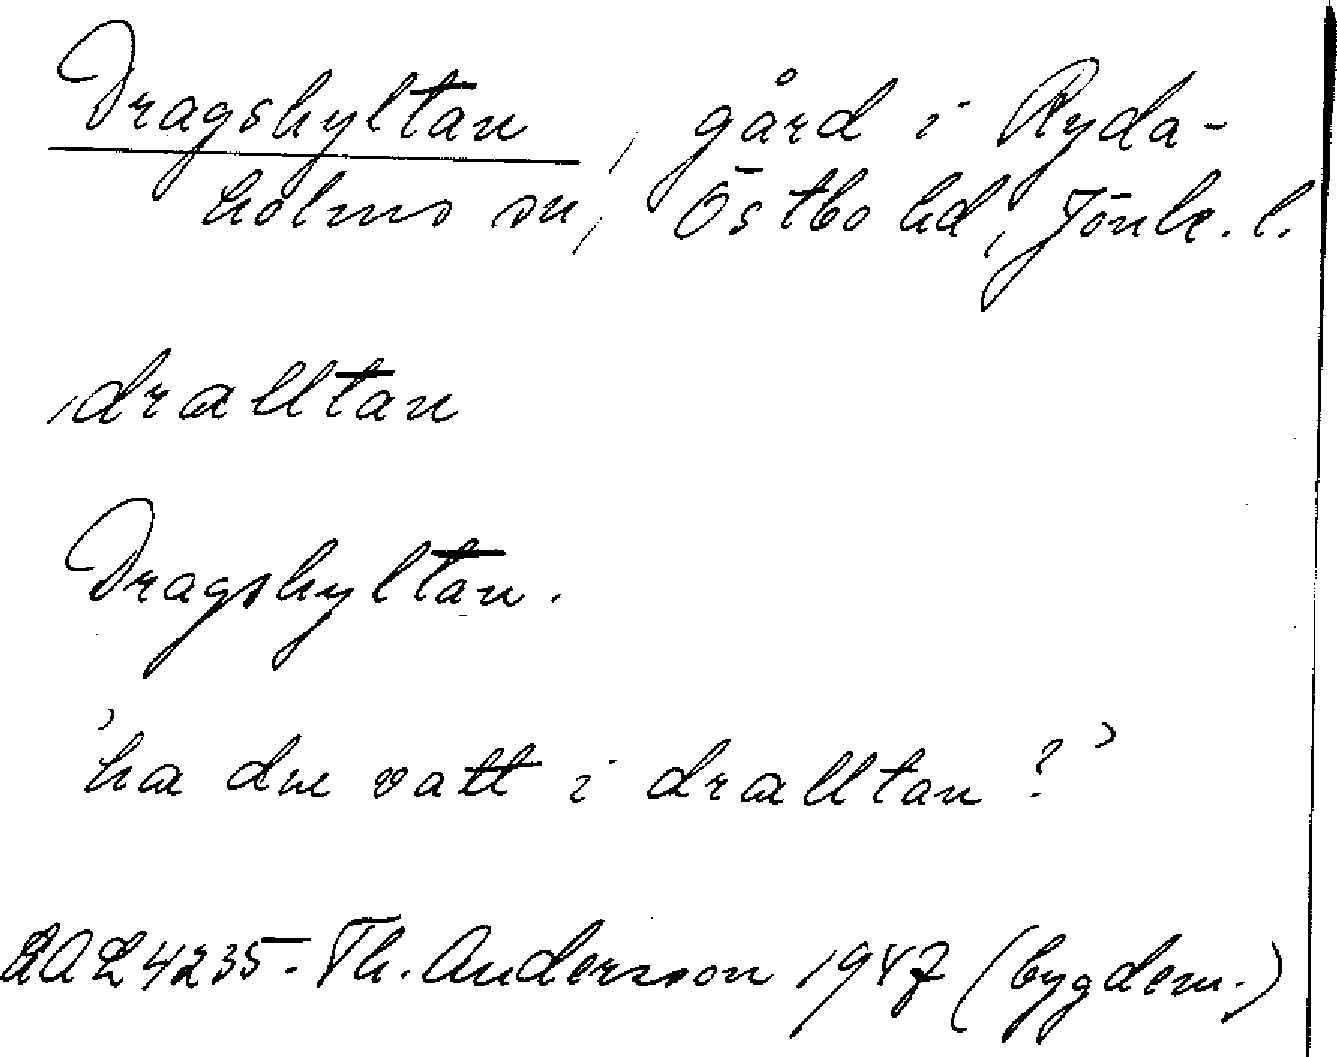 Dragshyltan, gård i Ryda-
holms sn, Östbo hd, Jönk. l.
ˌdralltan
Dragshyltan.
'ha du vatt i dralltan?'
LAL 4235 - Th. Andersson 1947 (bygdem.)